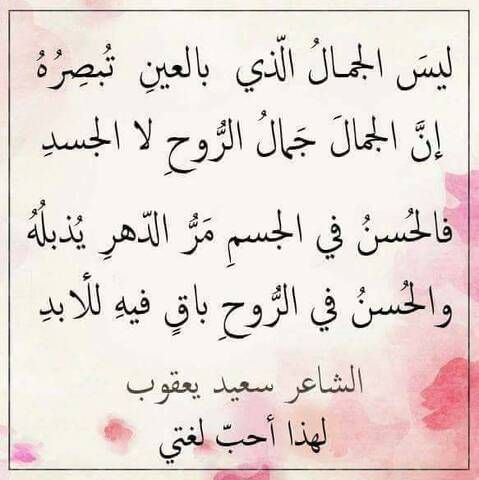 ليسَ الجمالُ الّذي بالعينِ تُبصِرُهُ
إنَّ الجمالَ جَمالُ الرُّوحِ لا الجسدِ
فالحُسنُ في الجسمِ مَرُّ الدّهرِ يُذبلُهُ
والحُسنُ في الرُّوحِ باقٍ فيهِ للأبدِ
الشاعر سعيد يعقوب
لهذا أحبّ لغتي